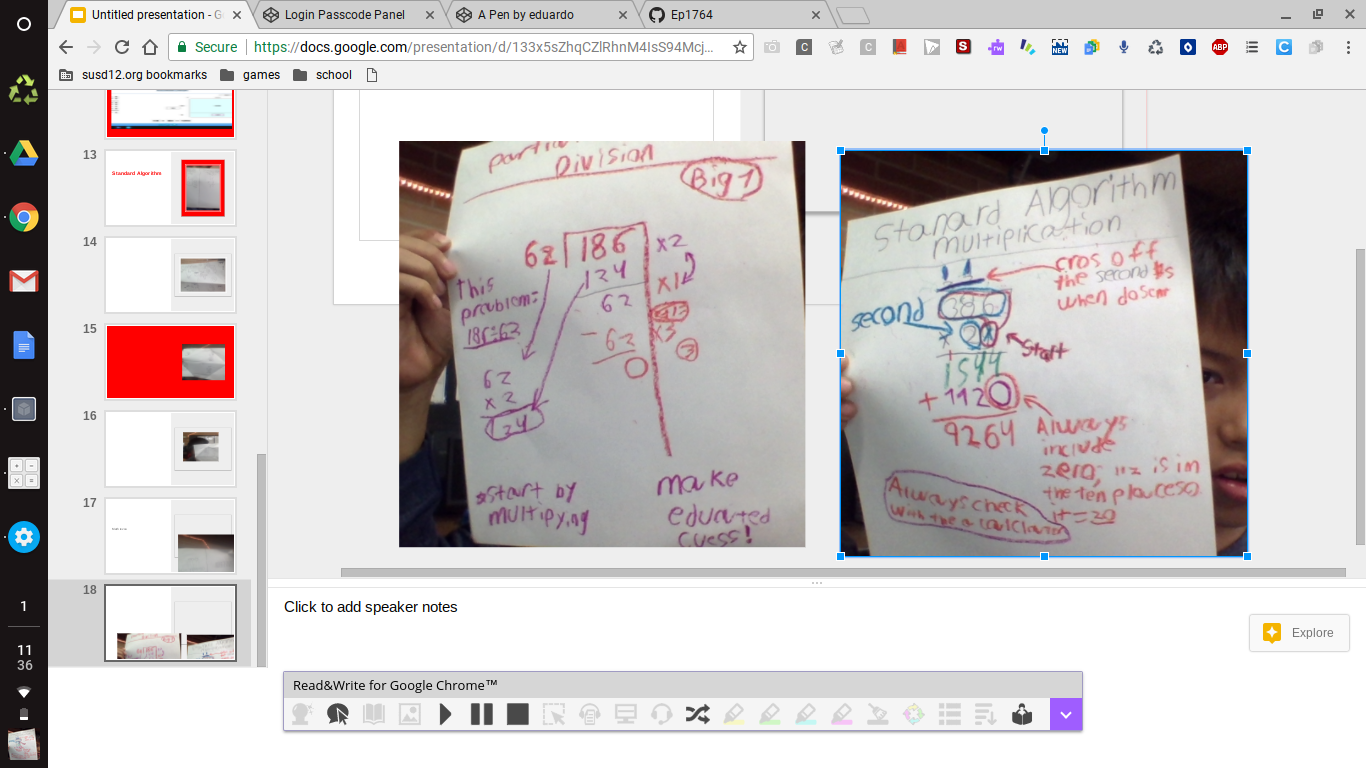 Untitled presentation - G
Login Passcode Panel
A Pen by eduardo
Ep1764
Secure
https://docs.google.com/presentation/d/133x5sZhqCZlRhnM4IsS94Mcj...
susd12.org bookmarks
games
school
13
Standard Algorithm
14
15
16
17
18
Division
Big 7
62 186 x2
124 x1
62
- 62 x3
0 3
this
preublem:
186÷62
62
x 2
124
*start by
multipying
make
eduated
Guess!
Stanard Algorithm
multiplication
1 1
cros off
the second #s
when dosem
386
second
x 2
start
1544
+ 1120
9264
Always
include
zero;
is in
the ten
it = 20
Always check
with the a
Click to add speaker notes
Explore
Read&Write for Google Chrome™
1
11
36